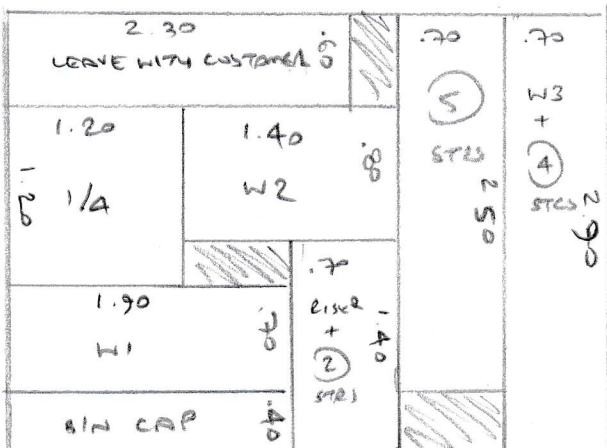 2.30
LEAVE WITH CUSTOMER .60
.70
5
STRS
2.50
.70
W3
+
4
STRS
2.90
1.20
1.20
1/4
1.40
.80
W2
1.90
.70
W1
.70
RISER
+
2
STRS
1.40
BIN CAP .40